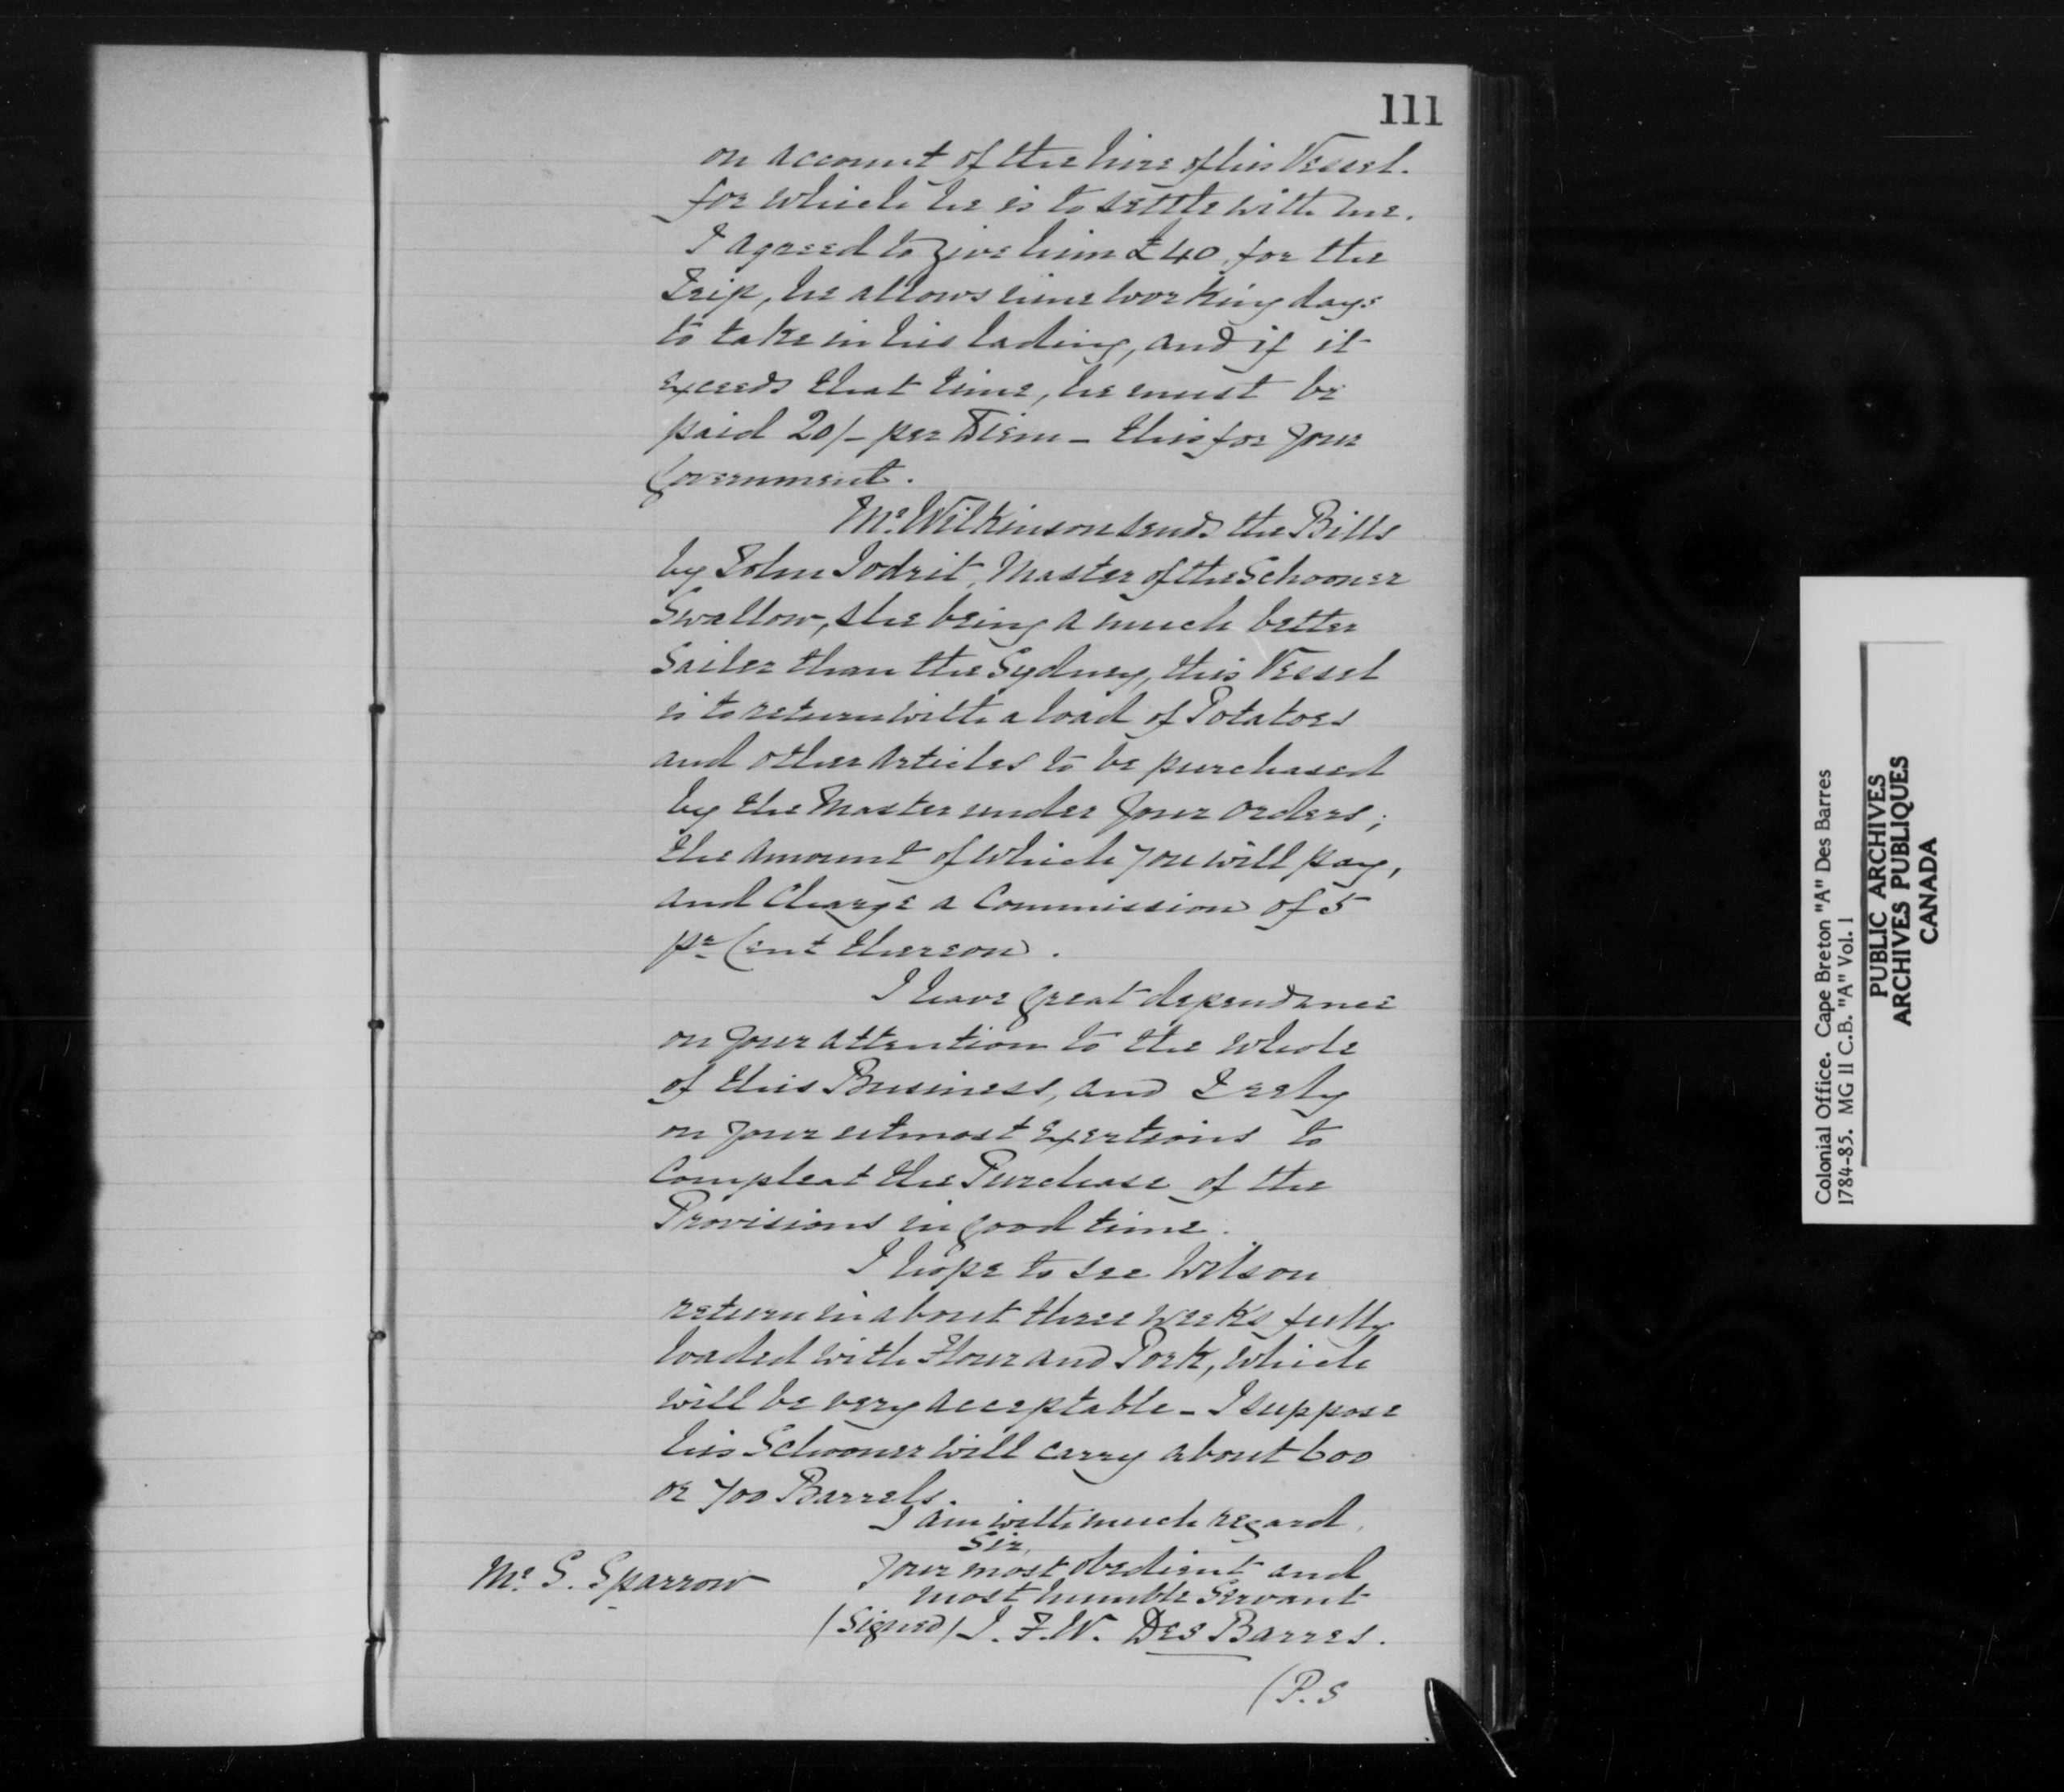 111
on account of the hire of his Vessel.
for which he is to settle with me.
I agreed to give him £40, for the
Trip, he allows nine working days
to take in his lading, and if it
exceeds that time, he must be
paid 20/- per Diem - this for your
Government.
Mr. Wilkinson sends the Bills
by John Jodrit, Master of the Schooner
Swallow, she being a much better
Sailer than the Sydney, this Vessel
is to return with a load of Potatoes
and other articles to be purchased
by the Master under your orders;
the amount of which you will pay,
and Charge a Commission of 5
pr Cent thereon.
I have great dependance
on your attention to the whole
of this Business, and I rely
on your utmost Exertions to
Compleat the Purchase of the
Provisions in good time.
I hope to see Wilson
return in about three weeks fully
loaded with Flour and Pork, which
will be very acceptable - I suppose
his Schooner will carry about 600
or 700 Barrels.
I am with much regard,
Sir,
Your most obedient and
most humble Servant
(Signed) J. F. W. Des Barres.
Mr. S. Sparrow
(P.S
Colonial Office. Cape Breton "A" Des Barres
1784-85. MG 11 C.B. "A" Vol. 1
PUBLIC ARCHIVES
ARCHIVES PUBLIQUES
CANADA